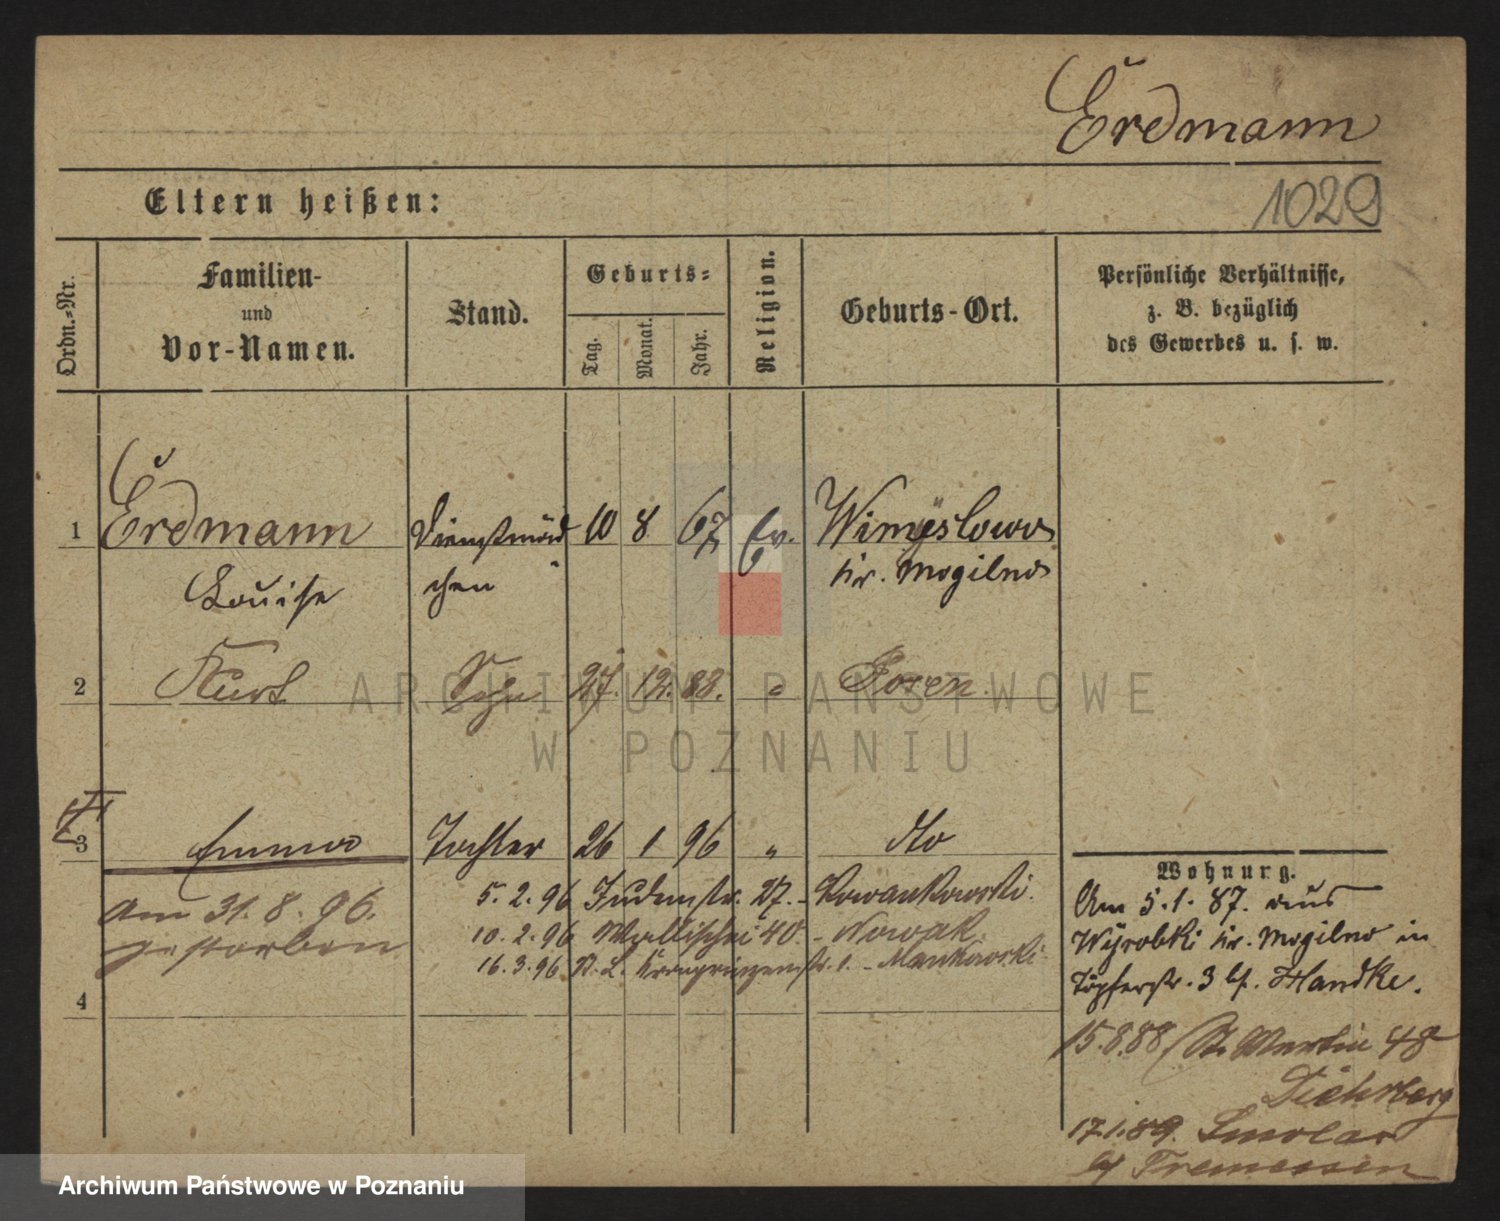 Erdmann
Eltern heißen:
1029
Ordn.-Nr.
Familien-
und
Vor-Namen.
Stand.
Geburts-
Tag.
Monat.
Jahr.
Religion.
Geburts-Ort.
Persönliche Verhältnisse,
z. B. bezüglich
des Gewerbes u. s. w.
1 Erdmann Dienstmäd 10 8 67 Ev. Wimyslowo
Louise chen Kr. Mogilno
2 Kurt Sohn 27. 12. 88. " Posen
ARCHIWUM PAŃSTWOWE
W POZNANIU
3 Emma Tochter 26 1 96 " dto
Am 31. 8. 96.
gestorben
5. 2. 96 Judenstr. 27. - Kowankowski.
10. 2. 96 Wallischei 40. - Nowak
16. 3. 96 St. L. Kronprinzenstr. 1. - Mankowski
4
Wohnung.
Am 5. 1. 87. aus
Wyrobki Kr. Mogilno in
Töpferstr. 3 bf. Handke.
15.8.88 St. Martin 48
17.1.89.
Tremessen
Archiwum Państwowe w Poznaniu